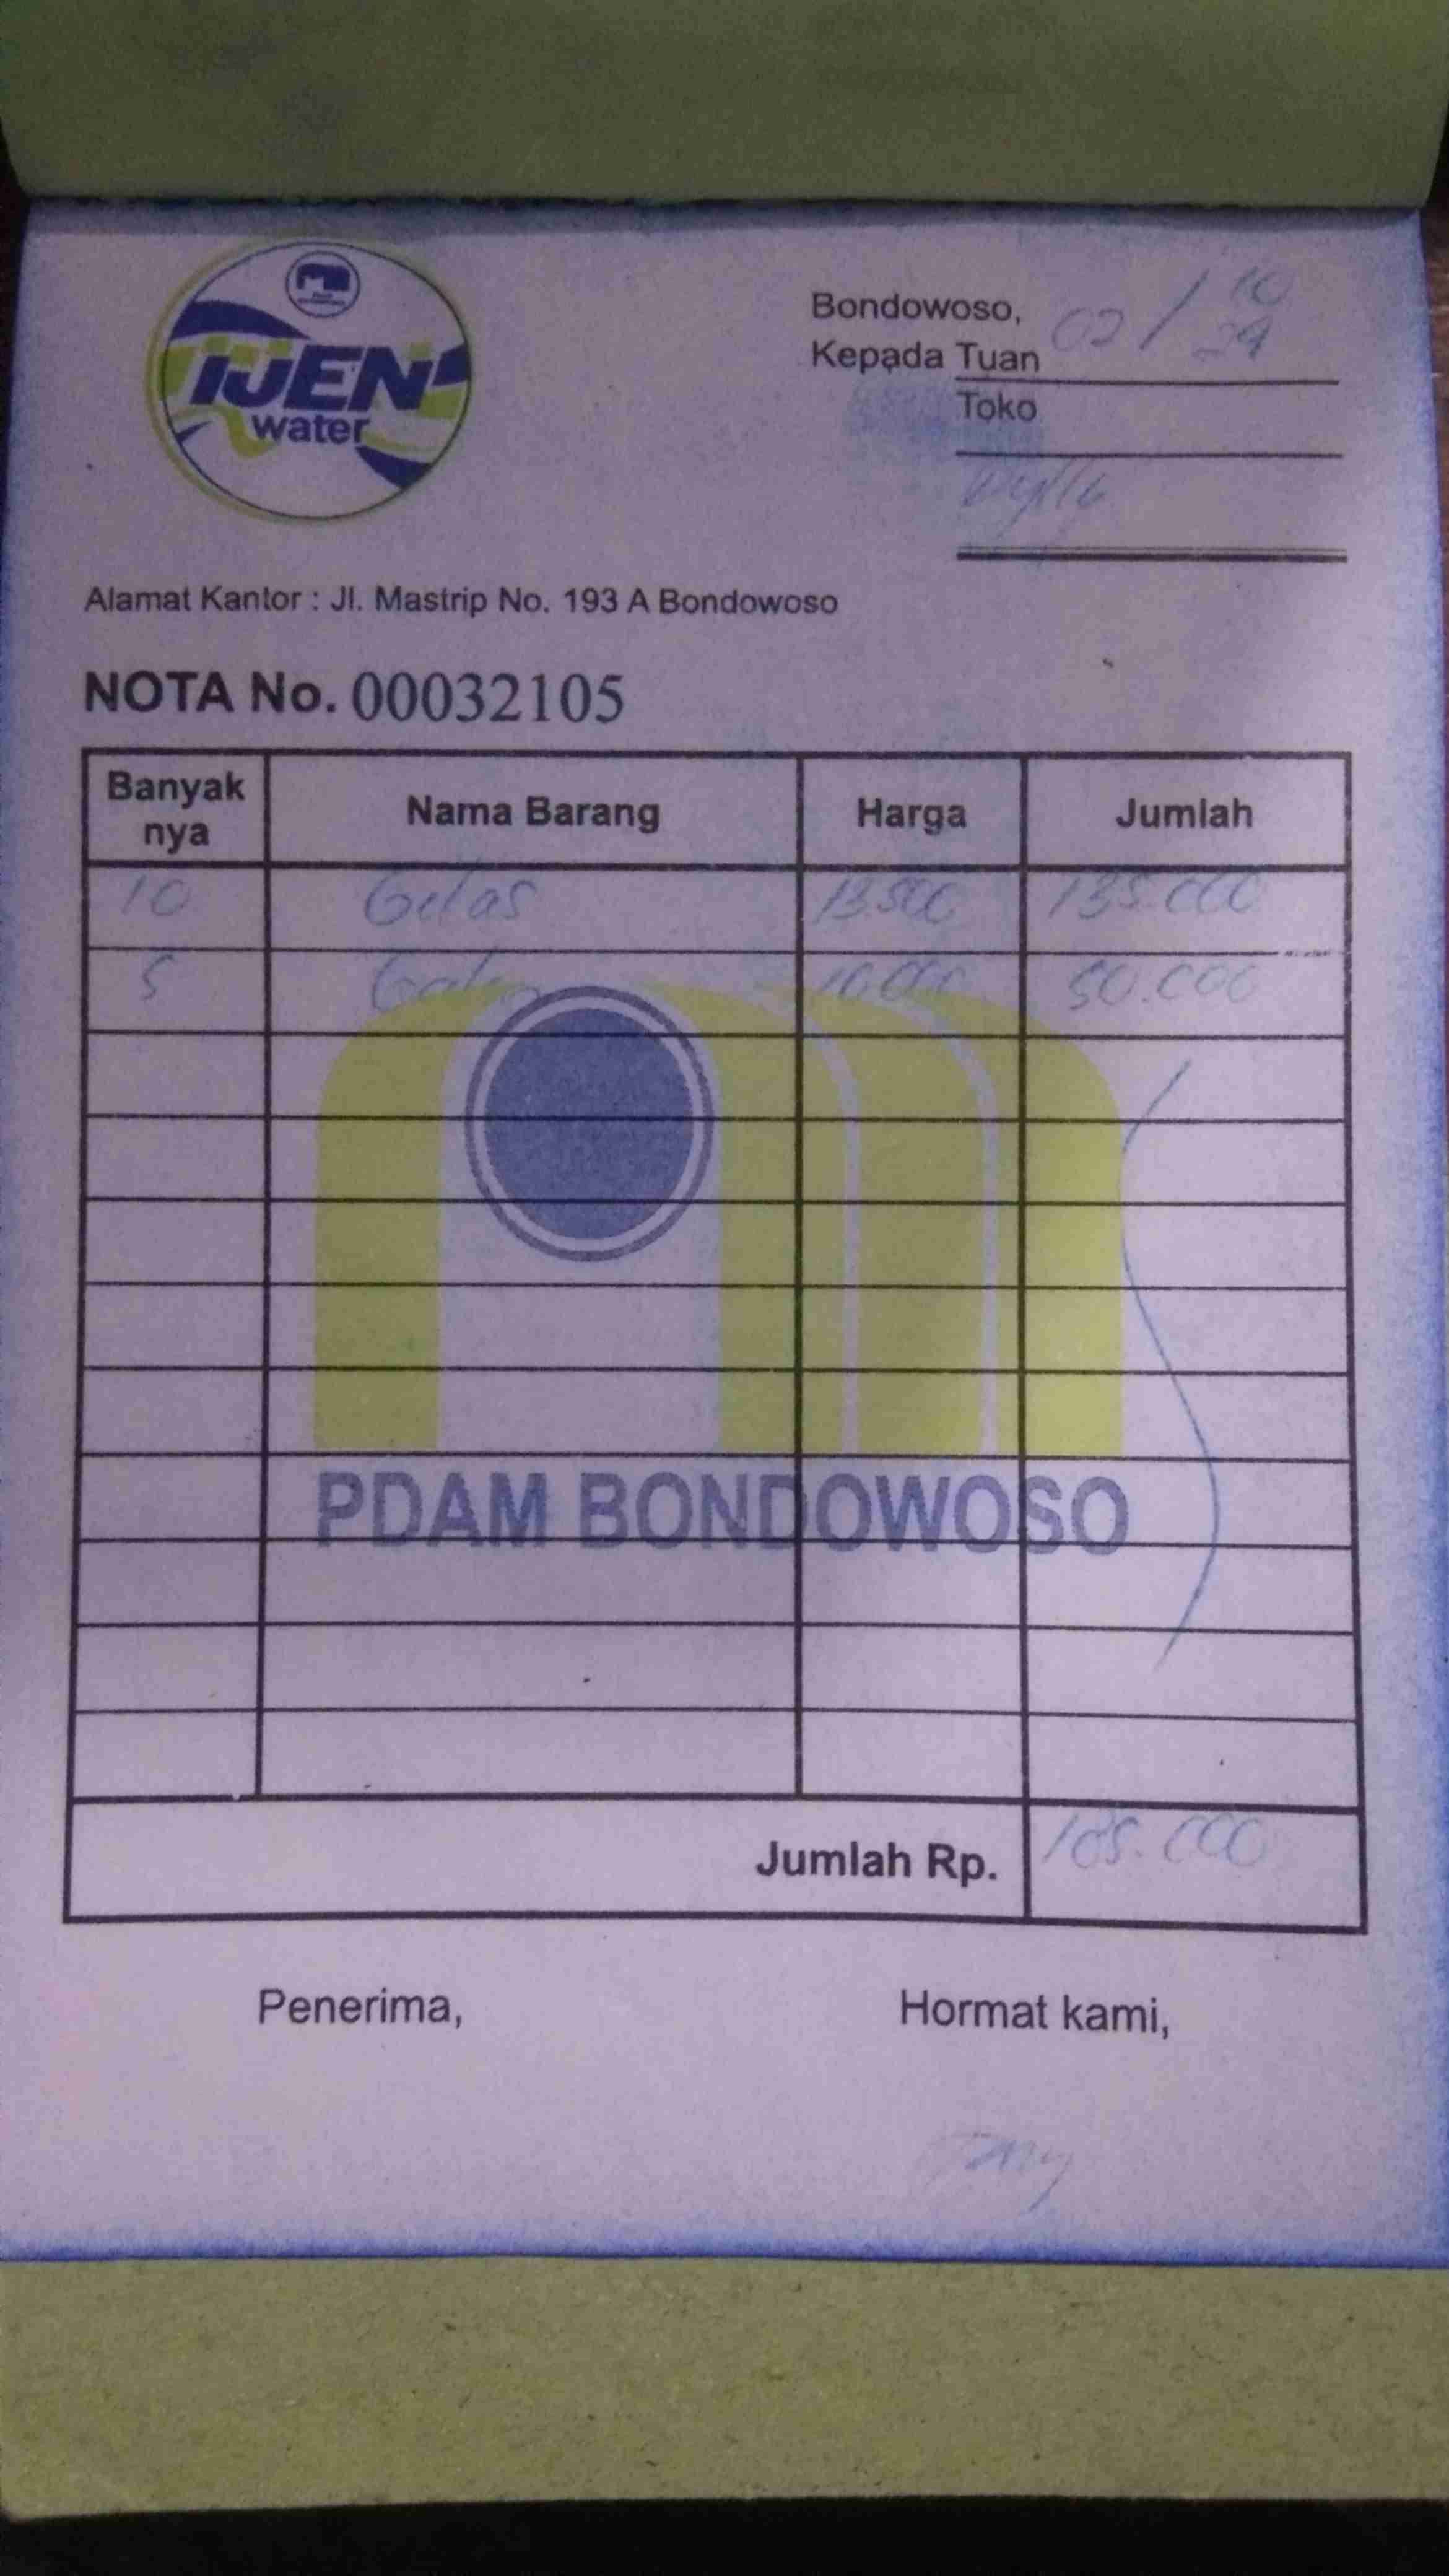 IJEN
water
Bondowoso, 02 / 10 24
Kepada Tuan
Toko
Alamat Kantor : Jl. Mastrip No. 193 A Bondowoso
NOTA No. 00032105
Banyak nya Nama Barang Harga Jumlah
10 Gelas 13.500 135.000
5 10.000 50.000
PDAM BONDOWOSO
Jumlah Rp. 185.000
Penerima, Hormat kami,